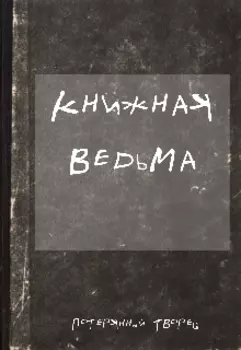 КНИЖНАЯ
ВЕДЬМА
ПОТЕРЯННЫЙ ТВОРЕЦ